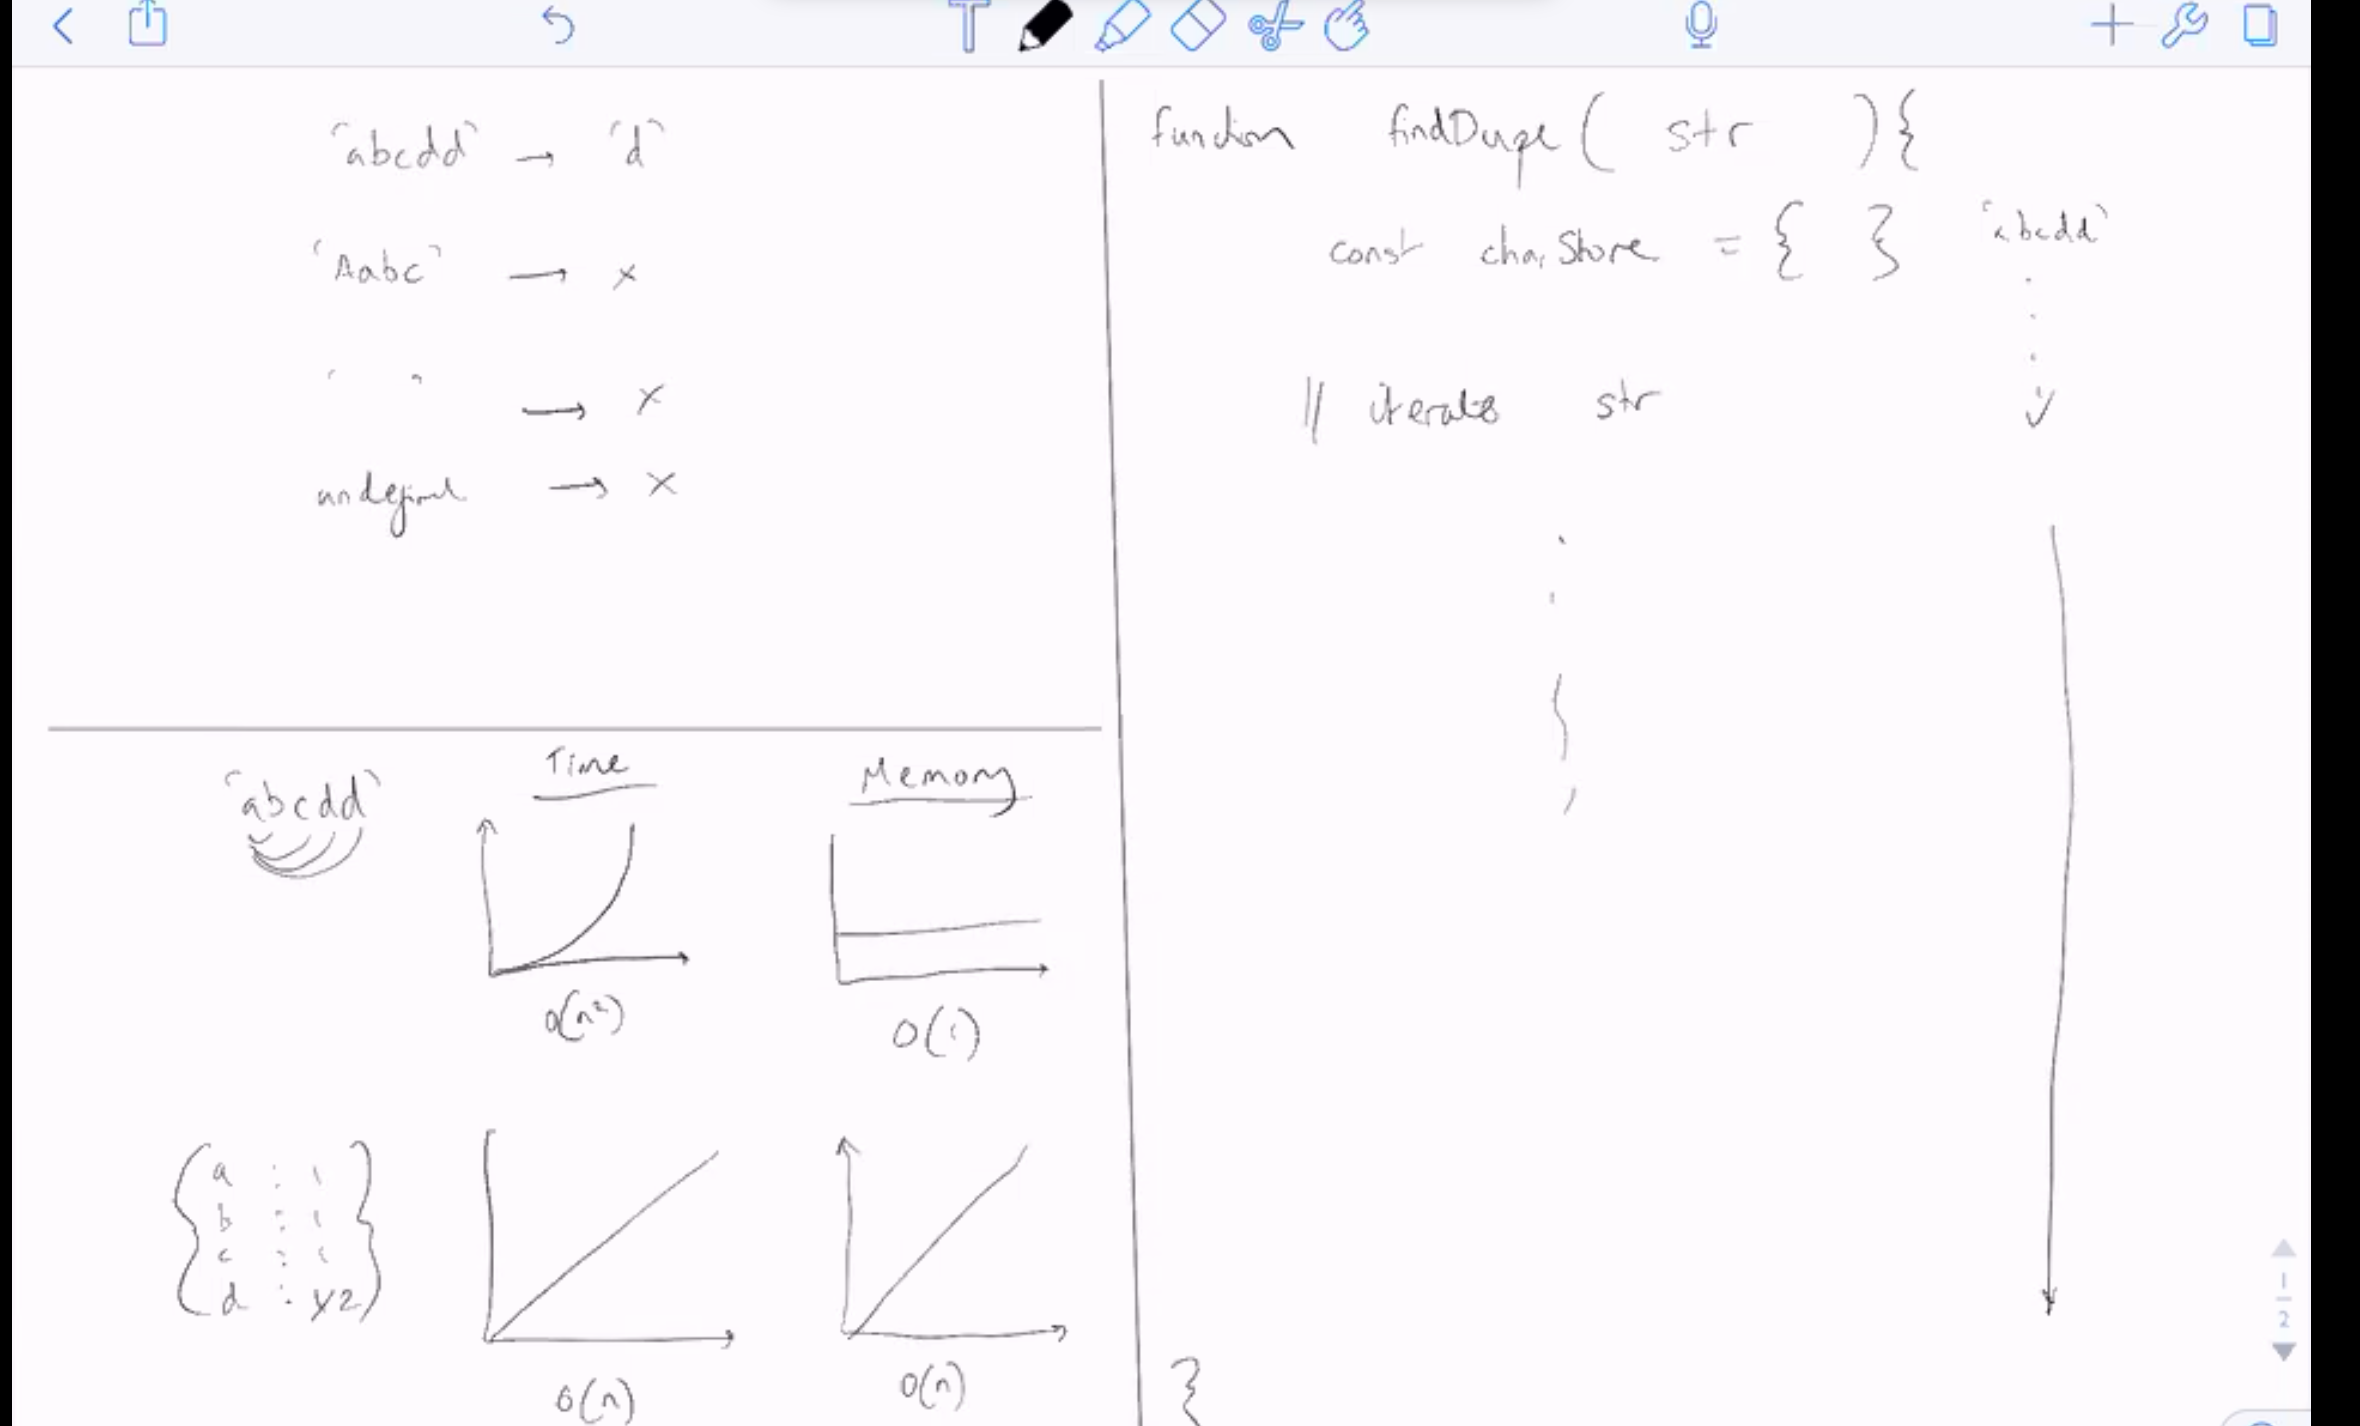 'abcdd' → 'd'
'Aabc' → x
' ' → x
undefined → x
Time
Memory
'abcdd'
O(n²)
O(1)
{ a : 1 }
b : 1
c : 1
d : 2
O(n)
O(n)
function findDupe( str ){
const charStore = { }
'abcdd'
// iterate str
}
1
2